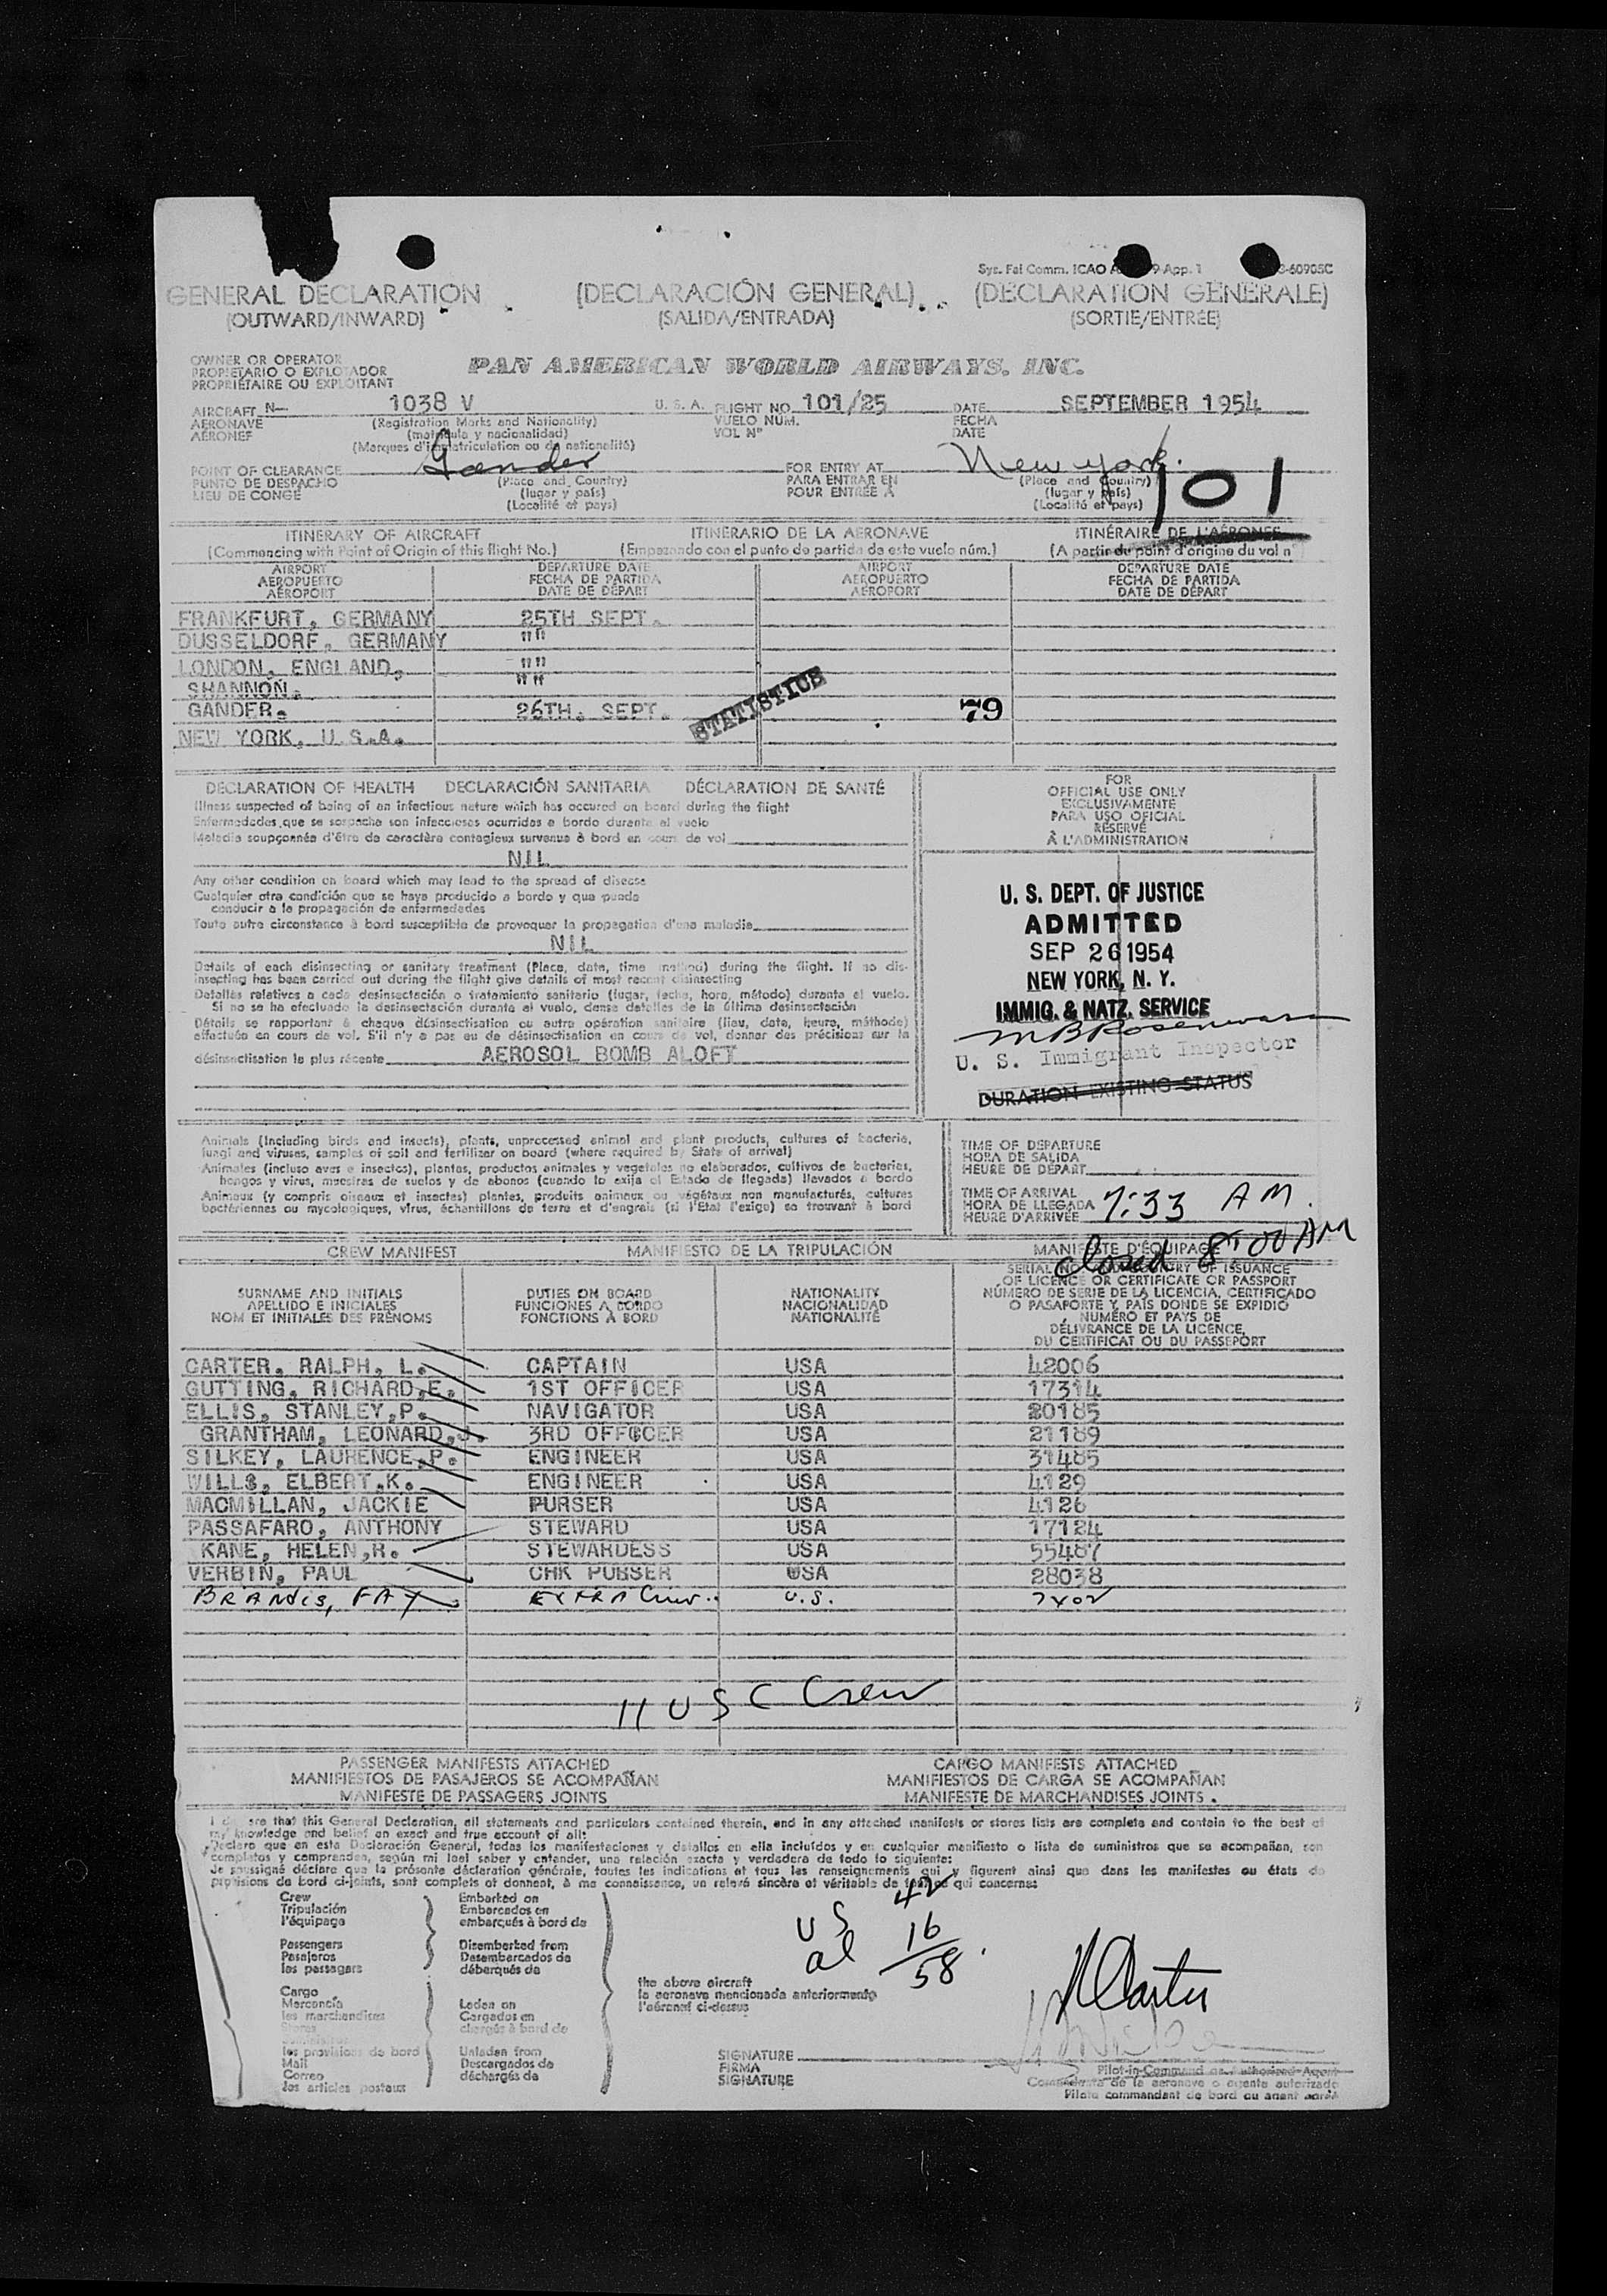 Sys. Fal Comm. ICAO 9 App. 1
GENERAL DECLARATION (DECLARACIÓN GENERAL) (DECLARATION GENERALE)
(OUTWARD/INWARD) (SALIDA/ENTRADA) (SORTIE/ENTRÉE)
OWNER OR OPERATOR
PROPIETARIO O EXPLOTADOR
PROPRIÉTAIRE OU EXPLOITANT
PAN AMERICAN WORLD AIRWAYS, INC.
AIRCRAFT N— 1038 V U. S. A. FLIGHT NO. 101/25 DATE SEPTEMBER 1954
AERONAVE (Registration Marks and Nationality) VUELO NÚM. FECHA
AÉRONEF (matrícula y nacionalidad) VOL Nº DATE
(Marques d'immatriculation ou de nationalité)
POINT OF CLEARANCE Gander FOR ENTRY AT New York.
PUNTO DE DESPACHO (Place and Country) PARA ENTRAR EN (Place and Country)
LIEU DE CONGÉ (lugar y país) POUR ENTRÉE À (lugar y país)
(Localité et pays) (Localité et pays)
101
ITINERARY OF AIRCRAFT ITINERARIO DE LA AERONAVE ITINÉRAIRE DE L'AÉRONEF
(Commencing with Point of Origin of this flight No.) (Empezando con el punto de partida de este vuelo núm.) (A partir du point d'origine du vol n°
AIRPORT DEPARTURE DATE AIRPORT DEPARTURE DATE
AEROPUERTO FECHA DE PARTIDA AEROPUERTO FECHA DE PARTIDA
AÉROPORT DATE DE DÉPART AÉROPORT DATE DE DÉPART
FRANKFURT, GERMANY 25TH SEPT.
DUSSELDORF, GERMANY ""
LONDON, ENGLAND, ""
SHANNON. ""
GANDER. 26TH. SEPT.
STATISTICS
79
NEW YORK, U.S.A.
DECLARATION OF HEALTH DECLARACIÓN SANITARIA DÉCLARATION DE SANTÉ
Illness suspected of being of an infectious nature which has occured on board during the flight
Enfermedades que se sospecha son infecciosas ocurridas a bordo durante el vuelo
Maladie soupçonnée d'être de caractère contagieux survenue à bord en cours de vol
NIL
Any other condition on board which may lead to the spread of disease
Cualquier otra condición que se haya producido a bordo y que pueda
conducir a la propagación de enfermedades
Toute autre circonstance à bord susceptible de provoquer la propagation d'une maladie
NIL
Details of each disinsecting or sanitary treatment (Place, date, time method) during the flight. If no dis-
insecting has been carried out during the flight give details of most recent disinsecting
Detalles relativos a cada desinsectación o tratamiento sanitario (lugar, fecha, hora, método) durante el vuelo.
Si no se ha efectuado la desinsectación durante el vuelo, dense detalles de la última desinsectación
Détails se rapportant à chaque désinsectisation ou autre opération sanitaire (lieu, date, heure, méthode)
effectuée en cours de vol. S'il n'y a pas eu de désinsectisation en cours de vol, donner des précisions sur la
désinsectisation le plus récente AEROSOL BOMB ALOFT
FOR
OFFICIAL USE ONLY
EXCLUSIVAMENTE
PARA USO OFICIAL
RÉSERVÉ
À L'ADMINISTRATION
U. S. DEPT. OF JUSTICE
ADMITTED
SEP 26 1954
NEW YORK, N. Y.
IMMIG. & NATZ. SERVICE
U. S. Immigrant Inspector
DURATION EXISTING STATUS
Animals (Including birds and insects), plants, unprocessed animal and plant products, cultures of bacteria,
fungi and viruses, samples of soil and fertilizer on board (where required by State of arrival)
Animales (incluso aves e insectos), plantas, productos animales y vegetales no elaborados, cultivos de bacterias,
hongos y virus, muestras de suelos y de abonos (cuando lo exija el Estado de llegada) llevados a bordo
Animaux (y compris oiseaux et insectes) plantes, produits animaux ou végétaux non manufacturés, cultures
bactériennes ou mycologiques, virus, échantillons de terre et d'engrais (si l'Etat l'exige) se trouvant à bord
TIME OF DEPARTURE
HORA DE SALIDA
HEURE DE DÉPART
TIME OF ARRIVAL
HORA DE LLEGADA 7:33 AM.
HEURE D'ARRIVÉE
closed 8:00 AM
CREW MANIFEST MANIFIESTO DE LA TRIPULACIÓN MANIFESTE D'ÉQUIPAGE
SURNAME AND INITIALS DUTIES ON BOARD NATIONALITY
APELLIDO E INICIALES FUNCIONES A BORDO NACIONALIDAD
NOM ET INITIALES DES PRÉNOMS FONCTIONS À BORD NATIONALITÉ
SERIAL NO. AND COUNTRY OF ISSUANCE
OF LICENCE OR CERTIFICATE OR PASSPORT
NÚMERO DE SERIE DE LA LICENCIA, CERTIFICADO
O PASAPORTE Y PAÍS DONDE SE EXPIDIÓ
NUMÉRO ET PAYS DE
DÉLIVRANCE DE LA LICENCE,
DU CERTIFICAT OU DU PASSEPORT
CARTER, RALPH, L. CAPTAIN USA 42006
GUTTING, RICHARD,E. 1ST OFFICER USA 17314
ELLIS, STANLEY,P. NAVIGATOR USA 20185
GRANTHAM, LEONARD,J. 3RD OFFICER USA 21189
SILKEY, LAURENCE,P. ENGINEER USA 31485
WILLS, ELBERT,K. ENGINEER USA 4129
MACMILLAN, JACKIE PURSER USA 4126
PASSAFARO, ANTHONY STEWARD USA 17124
KANE, HELEN,R. STEWARDESS USA 55487
VERBIN, PAUL CHK PURSER USA 28038
BRANDIS, FAY EXTRA Crew.. U.S.
11 USC Crew
PASSENGER MANIFESTS ATTACHED CARGO MANIFESTS ATTACHED
MANIFIESTOS DE PASAJEROS SE ACOMPAÑAN MANIFIESTOS DE CARGA SE ACOMPAÑAN
MANIFESTE DE PASSAGERS JOINTS MANIFESTE DE MARCHANDISES JOINTS.
that this General Declaration, all statements and particulars contained therein, and in any attached manifests or stores lists are complete and contain to the best of
my knowledge and belief an exact and true account of all:
Declaro que en esta Declaración General, todas las manifestaciones y detalles en ella incluídos y en cualquier manifiesto o lista de suministros que se acompañan, son
completos y comprenden, según mi leal saber y entender, una relación exacta y verdadera de todo lo siguiente:
Je soussigné déclare que la présente déclaration générale, toutes les indications et tous les renseignements qui y figurent ainsi que dans les manifestes ou états de
provisions de bord ci-joints, sont complets et donnent, à ma connaissance, un relevé sincère et véritable de tout ce qui concerne:
Crew Embarked on
Tripulación Embarcados en
l'équipage embarqués à bord de
Passengers Disembarked from
Pasajeros Desembarcados de
les passagers débarqués de
Cargo
Mercancía Laden on
les marchandises Cargados en
Stores chargés à bord de
les provisions de bord Unladen from
Mail Descargados de
Correo déchargés de
les articles postaux
the above aircraft
la aeronave mencionada anteriormente
l'aéronef ci-dessus
US 42
al 16
58
R Carter
SIGNATURE
FIRMA
SIGNATURE
Pilot-in-Command or Authorized Agent
Comandante de la aeronave o agente autorizado
Pilote commandant de bord ou agent agréé